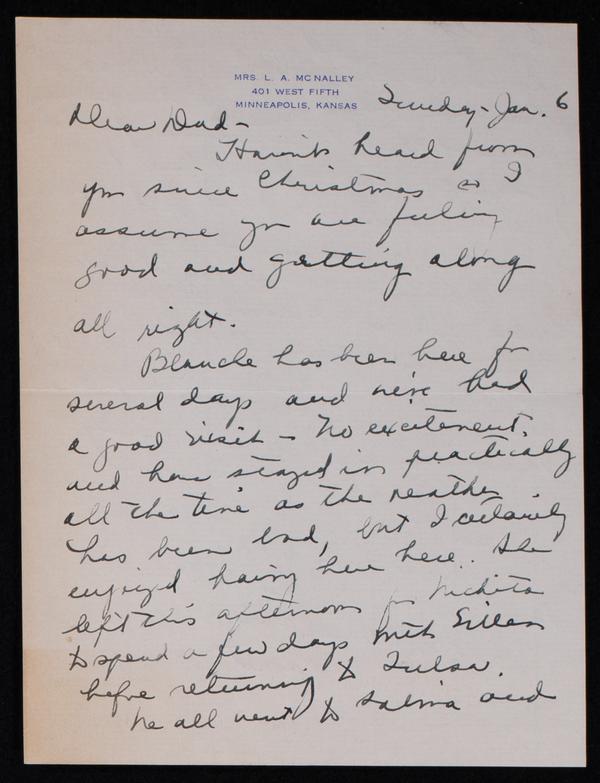 MRS. L. A. MCNALLEY
401 WEST FIFTH
MINNEAPOLIS, KANSAS
Sunday - Jan. 6
Dear Dad -
Haven't heard from
you since Christmas so I
assume you are feeling
good and getting along
all right.
Blanche has been here for
several days and we've had
a good visit - No excitement,
and have stayed in practically
all the time as the weather
has been bad, but I certainly
enjoyed having her here. She
left this afternoon for Wichita
to spend a few days with Eileen
before returning to Tulsa.
We all went to Salina and